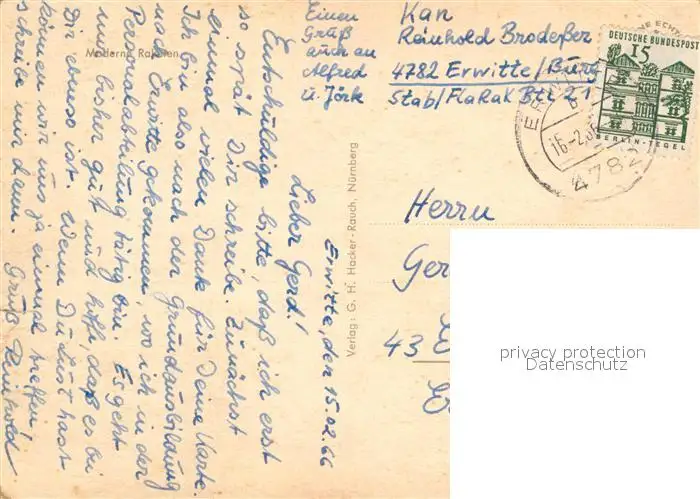 Erwitte, den 15.02.66
Lieber Gerd!
Entschuldige bitte, daß ich erst
so spät Dir schreibe. Zunächst
einmal vielen Dank für Deine Karte.
Ich bin also nach der Grundausbildung
nach Erwitte gekommen, wo ich in der
Personalabteilung tätig bin. Es geht
mir bisher gut und hoffe, daß es bei
Dir ebenso ist. Wenn Du Lust hast
können wir uns ja einmal treffen
schreibe mir dann. Gruß Reinhold
Einen
Gruß
auch an
Alfred
u. Jörk
Moderne Raketen
Verlag: G. H. Hacker-Rauch, Nürnberg
Kan
Reinhold Brodeßer
4782 Erwitte/Burg
Stab/FlaRak Btl 21
DEUTSCHE BUNDESPOST
15
BERLIN-TEGEL
16-2.66
4782
Herrn
Ger
43 E
privacy protection
Datenschutz